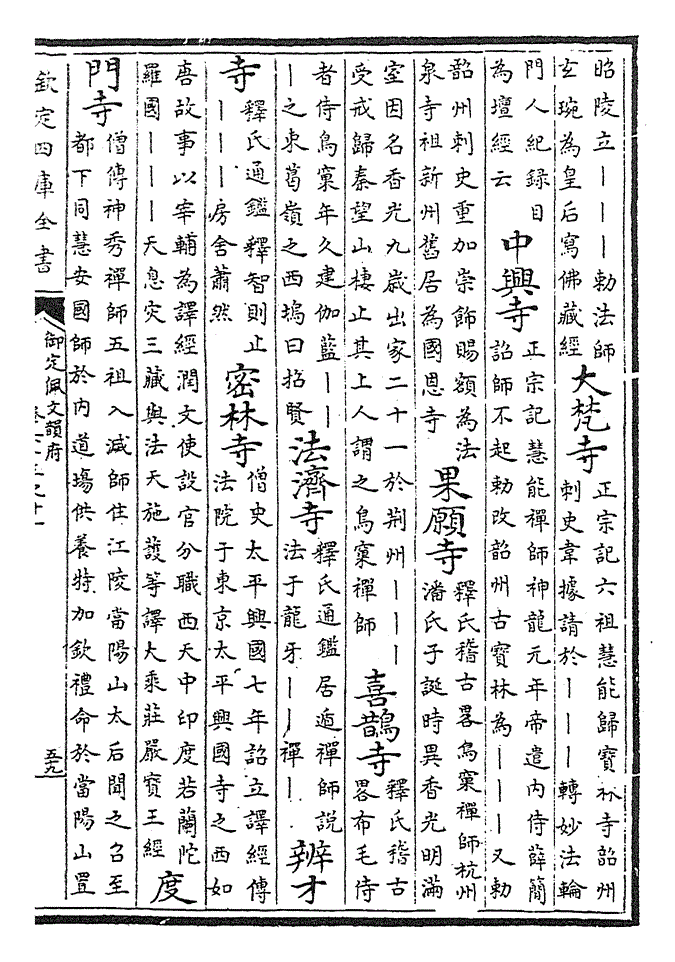 昭陵立｜｜｜勅法師
玄琬為皇后寫佛藏經
大梵寺
正宗記六祖慧能歸寶林寺韶州
刺史韋據請於｜｜｜轉妙法輪
門人紀錄目
為壇經云
中興寺
正宗記慧能禪師神龍元年帝遣内侍薛簡
詔師不起勅改韶州古寶林為｜｜｜又勅
韶州刺史重加崇飾賜額為法
泉寺祖新州舊居為國恩寺
果願寺
釋氏稽古畧鳥窠禪師杭州
潘氏子誕時異香光明滿
室因名香光九歲出家二十一於荆州｜｜｜
受戒歸秦望山棲止其上人謂之鳥窠禪師
喜鵲寺
釋氏稽古
畧布毛侍
者侍鳥窠年久建伽藍｜｜
｜之東葛嶺之西塢曰招賢
法濟寺
釋氏通鑑居遁禪師說
法于龍牙｜｜禪｜
辨才
寺
釋氏通鑑釋智則止
｜｜｜房舍蕭然
密林寺
僧史太平興國七年詔立譯經傳
法院于東京太平興國寺之西如
唐故事以宰輔為譯經潤文使設官分職西天中印度若蘭陀
羅國｜｜｜天息灾三藏與法天施護等譯大乘莊嚴寶王經
度
門寺
僧傳神秀禪師五祖入滅師住江陵當陽山太后聞之召至
都下同慧安國師於内道場供養特加欽禮命於當陽山置
欽定四庫全書
御定佩文韻府
五九